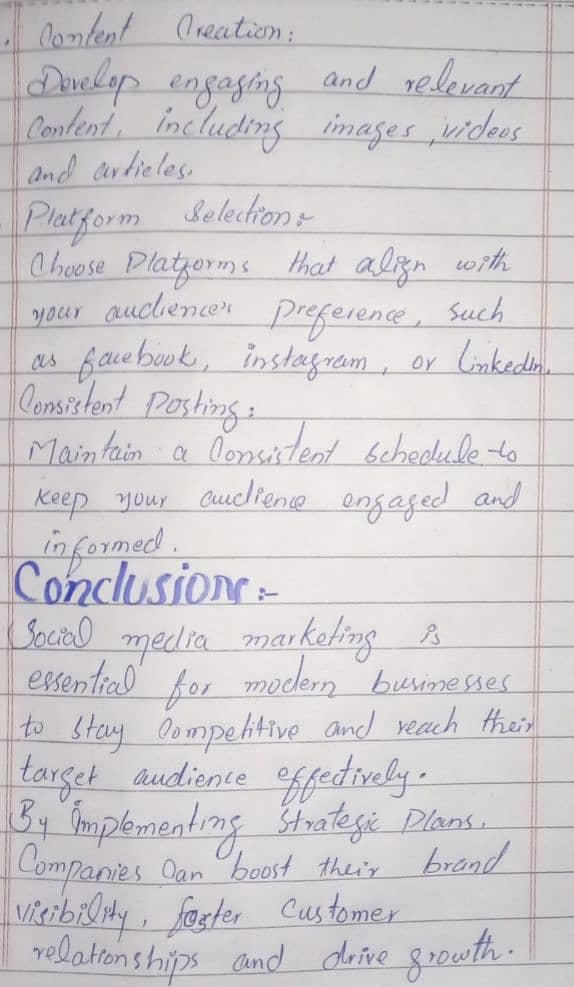 . Content Creation:
Develop engaging and relevant
Content, including images, videos
and articles.
Platform Selection:-
Choose Platforms that align with
your audience's preference, such
as facebook, instagram, or LinkedIn.
Consistent Posting:
Maintain a Consistent schedule to
keep your audience engaged and
informed.
Conclusion:-
Social media marketing is
essential for modern businesses
to stay Competitive and reach their
target audience effectively.
By Implementing Strategic Plans.
Companies Can boost their brand
visibility, foster Customer
relationships and drive growth.